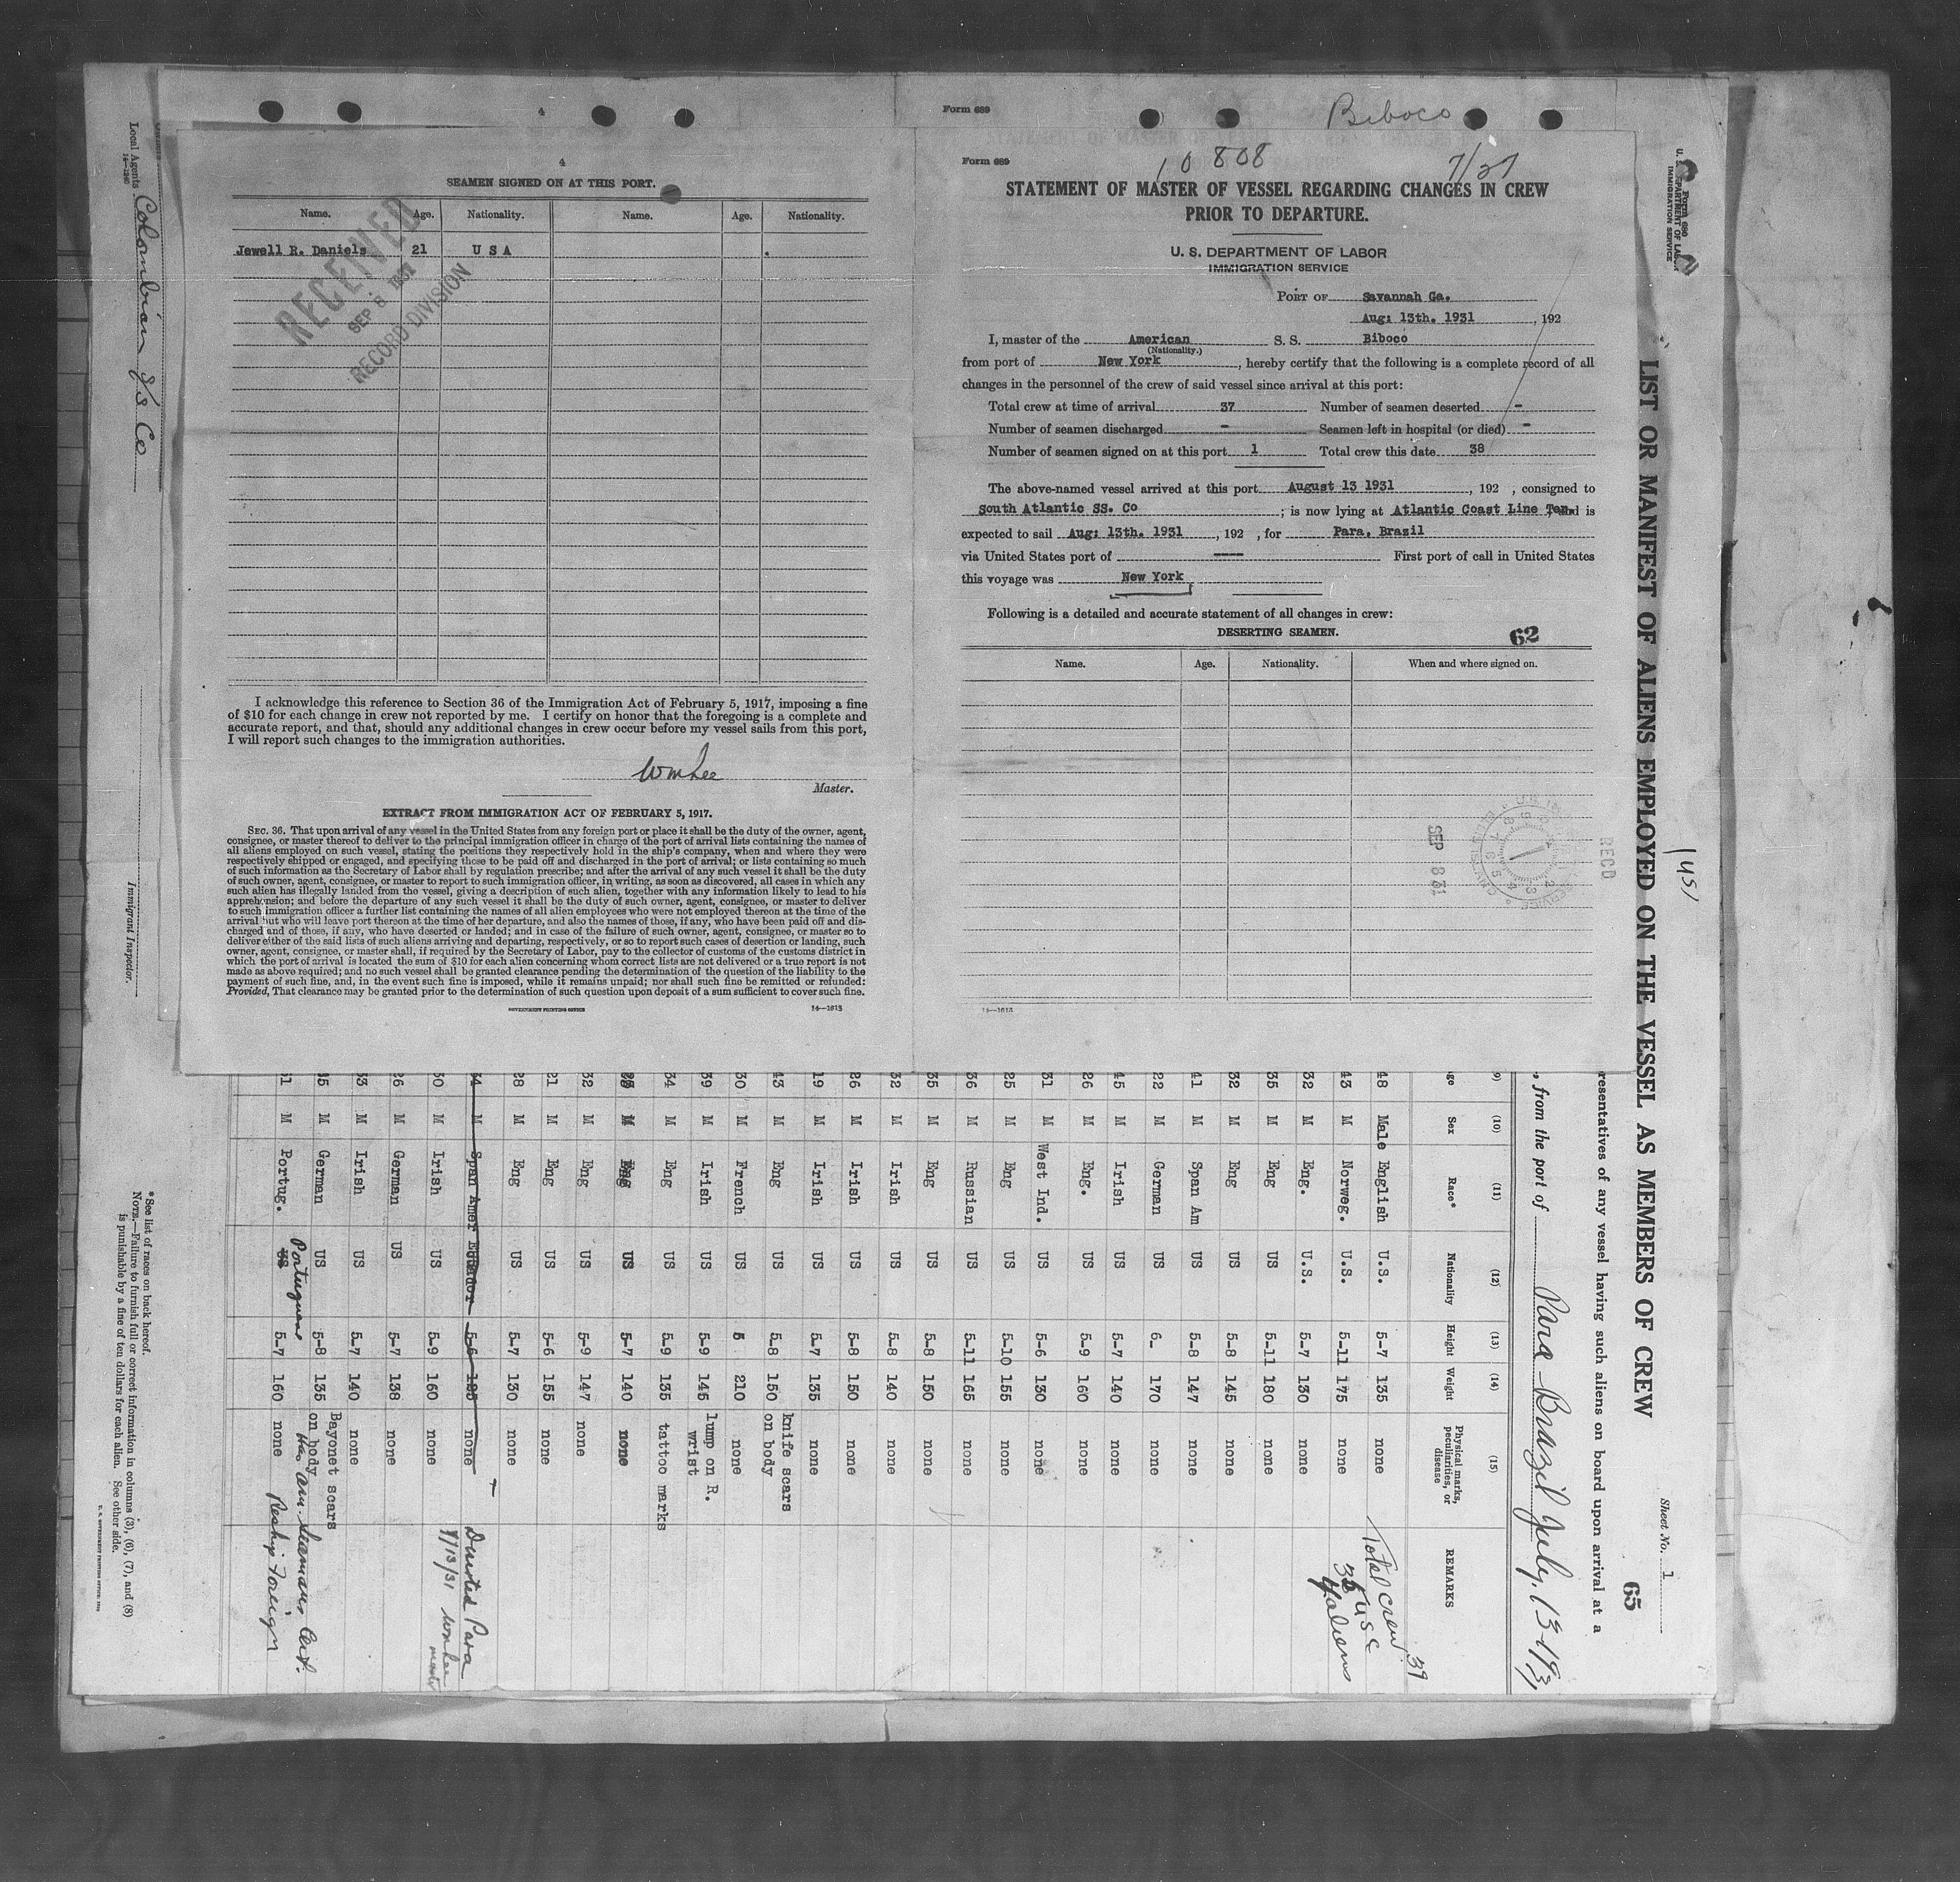 Form 689
Biboco
4
4
SEAMEN SIGNED ON AT THIS PORT.
Name. Age. Nationality. Name. Age. Nationality.
Jewell R. Daniels 21 U S A
RECEIVED
SEP 8 1931
RECORD DIVISION
I acknowledge this reference to Section 36 of the Immigration Act of February 5, 1917, imposing a fine
of $10 for each change in crew not reported by me. I certify on honor that the foregoing is a complete and
accurate report, and that, should any additional changes in crew occur before my vessel sails from this port,
I will report such changes to the immigration authorities.
Wm Lee
Master.
EXTRACT FROM IMMIGRATION ACT OF FEBRUARY 5, 1917.
SEC. 36. That upon arrival of any vessel in the United States from any foreign port or place it shall be the duty of the owner, agent,
consignee, or master thereof to deliver to the principal immigration officer in charge of the port of arrival lists containing the names of
all aliens employed on such vessel, stating the positions they respectively hold in the ship's company, when and where they were
respectively shipped or engaged, and specifying those to be paid off and discharged in the port of arrival; or lists containing so much
of such information as the Secretary of Labor shall by regulation prescribe; and after the arrival of any such vessel it shall be the duty
of such owner, agent, consignee, or master to report to such immigration officer, in writing, as soon as discovered, all cases in which any
such alien has illegally landed from the vessel, giving a description of such alien, together with any information likely to lead to his
apprehension; and before the departure of any such vessel it shall be the duty of such owner, agent, consignee, or master to deliver
to such immigration officer a further list containing the names of all alien employees who were not employed thereon at the time of the
arrival but who will leave port thereon at the time of her departure, and also the names of those, if any, who have been paid off and dis-
charged and of those, if any, who have deserted or landed; and in case of the failure of such owner, agent, consignee, or master so to
deliver either of the said lists of such aliens arriving and departing, respectively, or so to report such cases of desertion or landing, such
owner, agent, consignee, or master shall, if required by the Secretary of Labor, pay to the collector of customs of the customs district in
which the port of arrival is located the sum of $10 for each alien concerning whom correct lists are not delivered or a true report is not
made as above required; and no such vessel shall be granted clearance pending the determination of the question of the liability to the
payment of such fine, and, in the event such fine is imposed, while it remains unpaid; nor shall such fine be remitted or refunded:
Provided, That clearance may be granted prior to the determination of such question upon deposit of a sum sufficient to cover such fine.
GOVERNMENT PRINTING OFFICE 14—1613
Form 689
10808 7/31
STATEMENT OF MASTER OF VESSEL REGARDING CHANGES IN CREW
PRIOR TO DEPARTURE.
U. S. DEPARTMENT OF LABOR
IMMIGRATION SERVICE
PORT OF Savannah Ga.
Aug: 13th. 1931 , 192
I, master of the American S. S. Biboco
(Nationality.)
from port of New York , hereby certify that the following is a complete record of all
changes in the personnel of the crew of said vessel since arrival at this port:
Total crew at time of arrival 37 Number of seamen deserted -
Number of seamen discharged - Seamen left in hospital (or died) -
Number of seamen signed on at this port 1 Total crew this date 38
The above-named vessel arrived at this port August 13 1931 , 192 , consigned to
South Atlantic SS. Co ; is now lying at Atlantic Coast Line Tem. and is
expected to sail Aug: 13th. 1931 , 192 , for Para, Brazil
via United States port of — First port of call in United States
this voyage was New York
Following is a detailed and accurate statement of all changes in crew:
DESERTING SEAMEN.
62
Name. Age. Nationality. When and where signed on.
SEP 8 31
RECD
14—1613
Form 680
U. S. DEPARTMENT OF LABOR
IMMIGRATION SERVICE
LIST OR MANIFEST OF ALIENS EMPLOYED ON THE VESSEL AS MEMBERS OF CREW
Sheet No. 1
65
resentatives of any vessel having such aliens on board upon arrival at a
, from the port of Para Brazil July, 13-1931
(9) (10) (11) (12) (13) (14) (15)
ge Sex Race* Nationality Height Weight Physical marks, peculiarities, or disease REMARKS
48 Male English U.S. 5-7 135 none
Total crew 39
43 M Norweg. U.S. 5-11 175 none
35 USC
4 aliens
32 M Eng. U.S. 5-7 130 none
35 M Eng US 5-11 180 none
32 M Eng US 5-8 145 none
41 M Span Am US 5-8 147 none
22 M German US 6- 170 none
45 M Irish US 5-7 140 none
26 M Eng. US 5-9 160 none
31 M West Ind. US 5-6 130 none
25 M Eng US 5-10 155 none
36 M Russian US 5-11 165 none
35 M Eng US 5-8 150 none
32 M Irish US 5-8 140 none
26 M Irish US 5-8 150 none
19 M Irish US 5-7 135 none
43 M Eng US 5-8 150 knife scars on body
30 M French US 5 210 none
39 M Irish US 5-9 145 lump on R. wrist
34 M Eng US 5-9 135 tattoo marks
M Eng US 5-7 140 none
32 M Eng US 5-9 147 none
21 M Eng US 5-6 155 none
28 M Eng US 5-7 130 none
34 M Span Amer Equador 5-6 none Deserted Para
7/13/31 Wm Lee master
30 M Irish US 5-9 160 none
26 M German US 5-7 138 none
33 M Irish US 5-7 140 none
35 M German US 5-8 135 Bayonet scars on body
Has Am. Seamans Cert.
31 M Portug. US Portuguese 5-7 160 none Reship Foreign
*See list of races on back hereof.
NOTE.—Failure to furnish full or correct information in columns (3), (6), (7), and (8)
is punishable by a fine of ten dollars for each alien. See other side.
Local Agents Colombian S/S Co
14—1240
Immigrant Inspector.